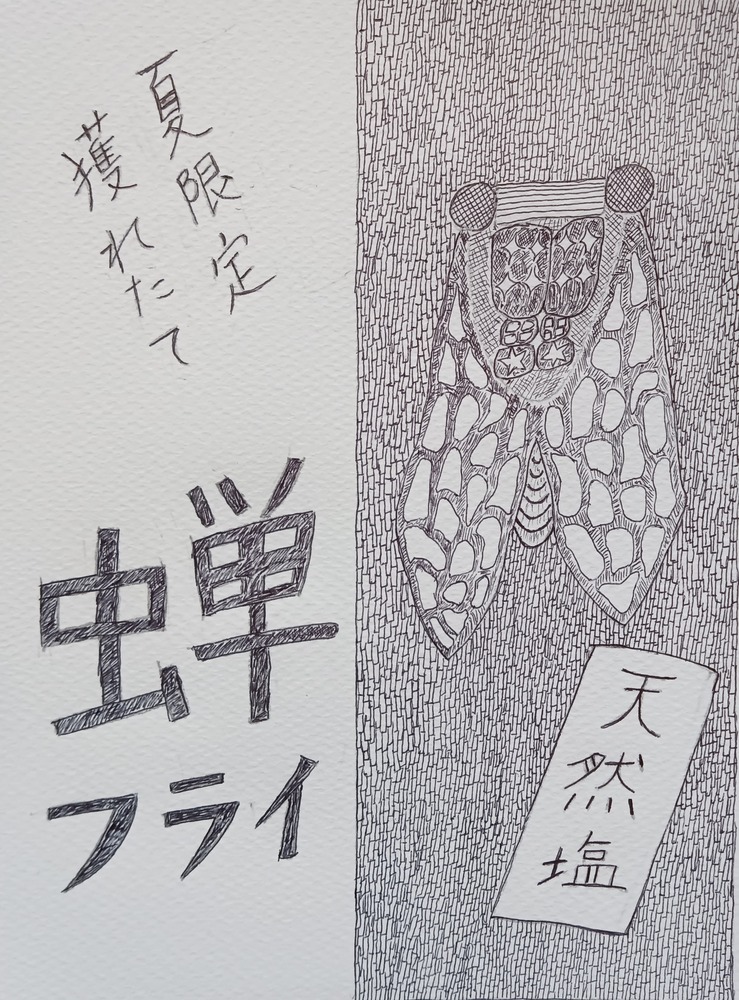 夏限定
獲れたて
蝉
フライ
天然塩